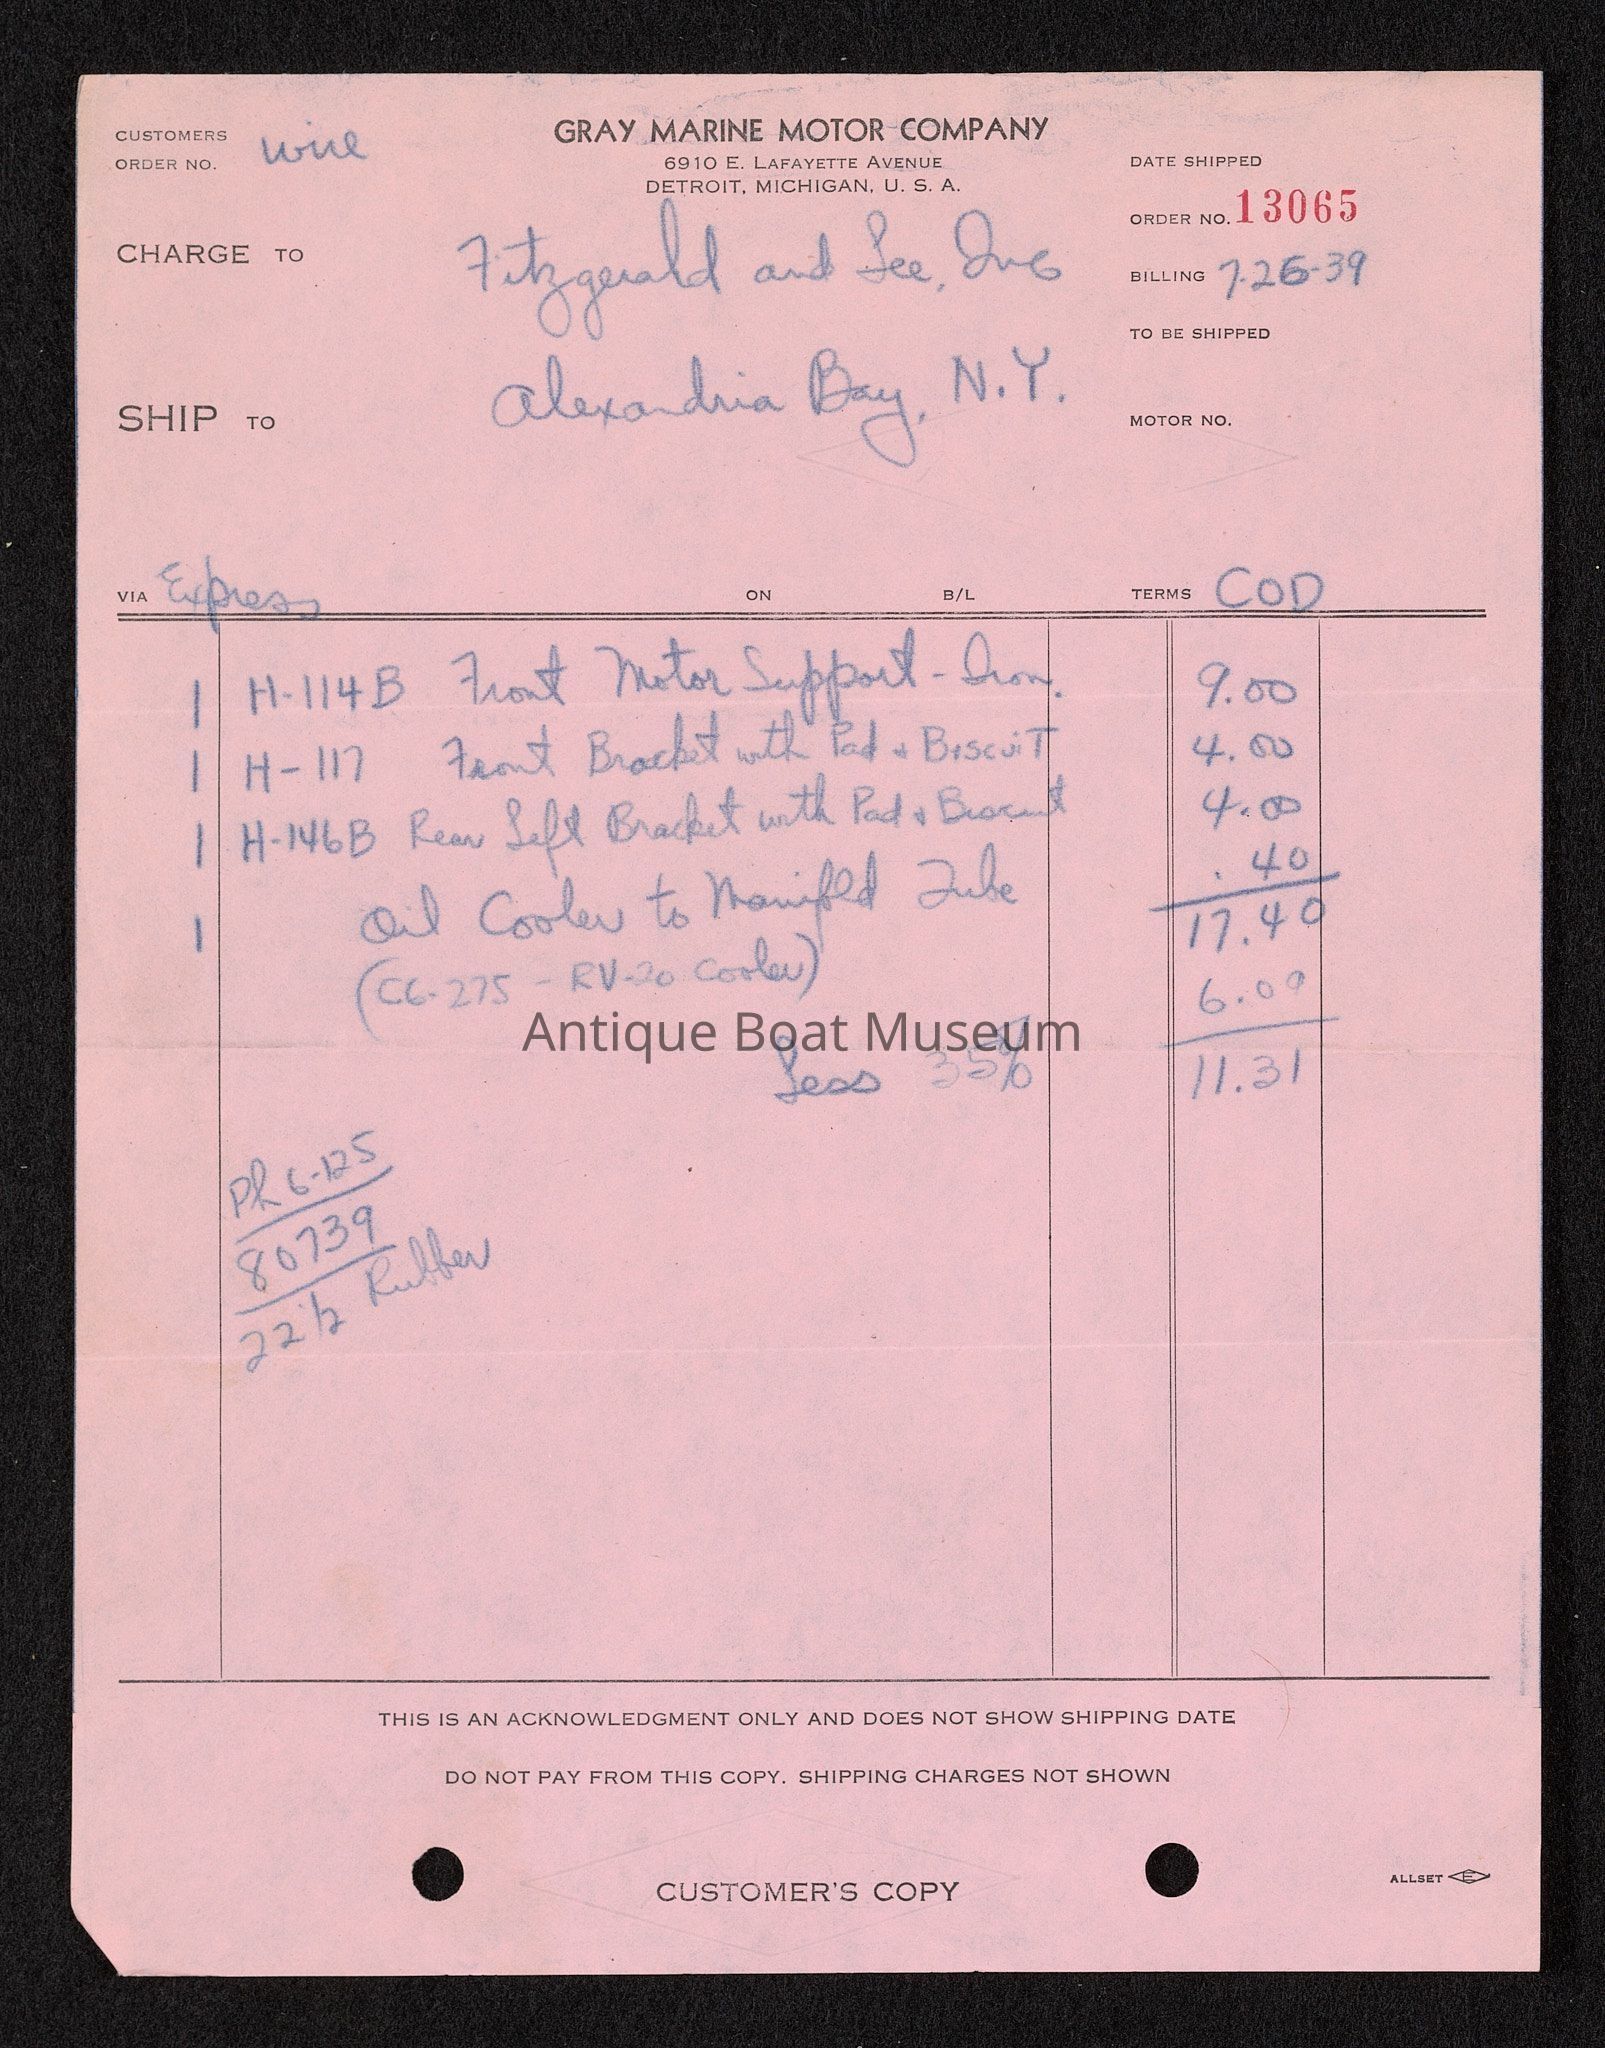 CUSTOMERS
ORDER NO. wire
GRAY MARINE MOTOR COMPANY
6910 E. LAFAYETTE AVENUE
DETROIT, MICHIGAN, U. S. A.
DATE SHIPPED
ORDER NO. 13065
CHARGE TO Fitzgerald and Lee, Inc
BILLING 7-26-39
TO BE SHIPPED
SHIP TO Alexandria Bay, N.Y.
MOTOR NO.
VIA Express ON B/L TERMS COD
1 H-114B Front Motor Support - Iron. 9.00
1 H-117 Front Bracket with Pad + Biscuit 4.00
1 H-146B Rear Left Bracket with Pad + Biscuit 4.00
1 Oil Cooler to Manifold Tube .40
17.40
(C6-275 - RV-20 Cooler) 6.09
Antique Boat Museum
Less 35% 11.31
Ph 6-125
80739
22 1/2 Rubber
THIS IS AN ACKNOWLEDGMENT ONLY AND DOES NOT SHOW SHIPPING DATE
DO NOT PAY FROM THIS COPY. SHIPPING CHARGES NOT SHOWN
CUSTOMER'S COPY
ALLSET E